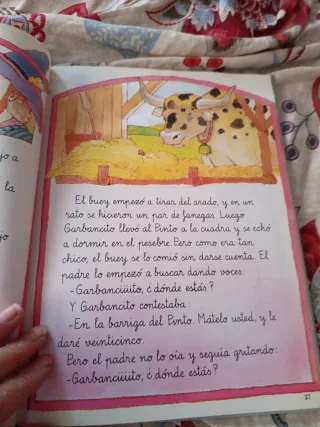 jo a
la
jo
El buey empezó a tirar del arado, y en un
rato se hicieron un par de fanegas. Luego
Garbancito llevó al Pinto a la cuadra y se echó
a dormir en el pesebre. Pero como era tan
chico, el buey se lo comió sin darse cuenta. El
padre lo empezó a buscar dando voces:
-Garbanciiiito, ¿dónde estás?
Y Garbancito contestaba:
-En la barriga del Pinto. Mátelo usted, y le
daré veinticinco.
Pero el padre no lo oía y seguía gritando:
-Garbanciiiito, ¿dónde estás?
27